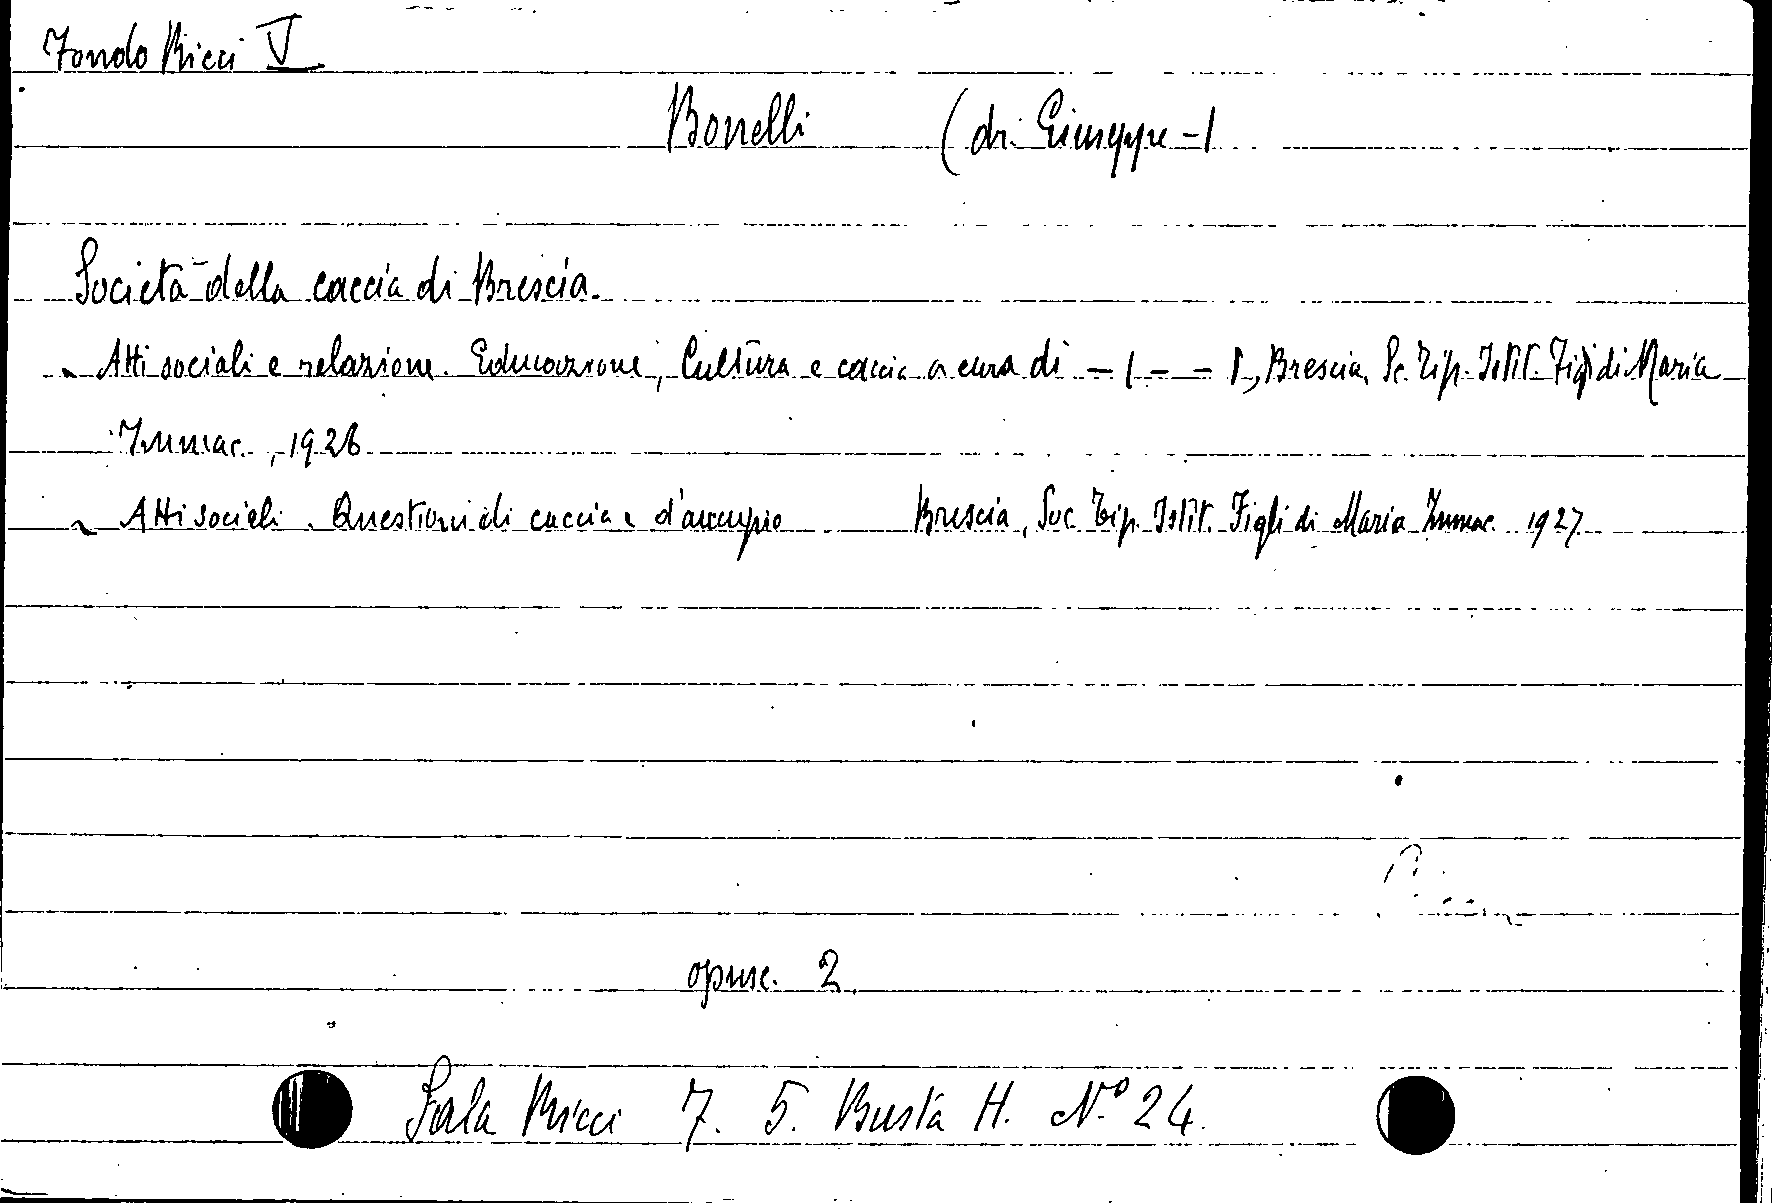 Fondo Ricci V
Bonelli (dr. Giuseppe -)
Società della caccia di Brescia.
Atti sociali e relazione. Educazione, Cultura e caccia a cura di - ( - - ), Brescia, Sc. Tip. Istit. Figli di Maria
Immac., 1926
Atti sociali. Questioni di caccia e d'aucupio Brescia, Soc. Tip. Istit. Figli di Maria Immac. 1927
opusc. 2.
Sala Ricci 7. 5. Busta H. N.º 24.